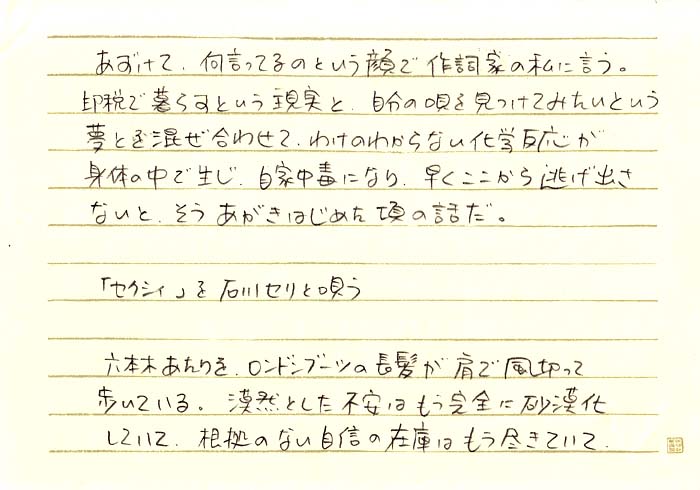 あずけて、何言ってるのという顔で作詞家の私に言う。
印税で暮らすという現実と、自分の唄を見つけてみたいという
夢とを混ぜ合わせて、わけのわからない化学反応が
身体の中で生じ、自家中毒になり、早くここから逃げ出さ
ないと、そうあがきはじめた頃の話だ。
「セクシィ」を石川セリと唄う
六本木あたりを、ロンドンブーツの長髪が肩で風切って
歩いている。漠然とした不安はもう完全に砂漠化
していて、根拠のない自信の在庫はもう尽きていて、